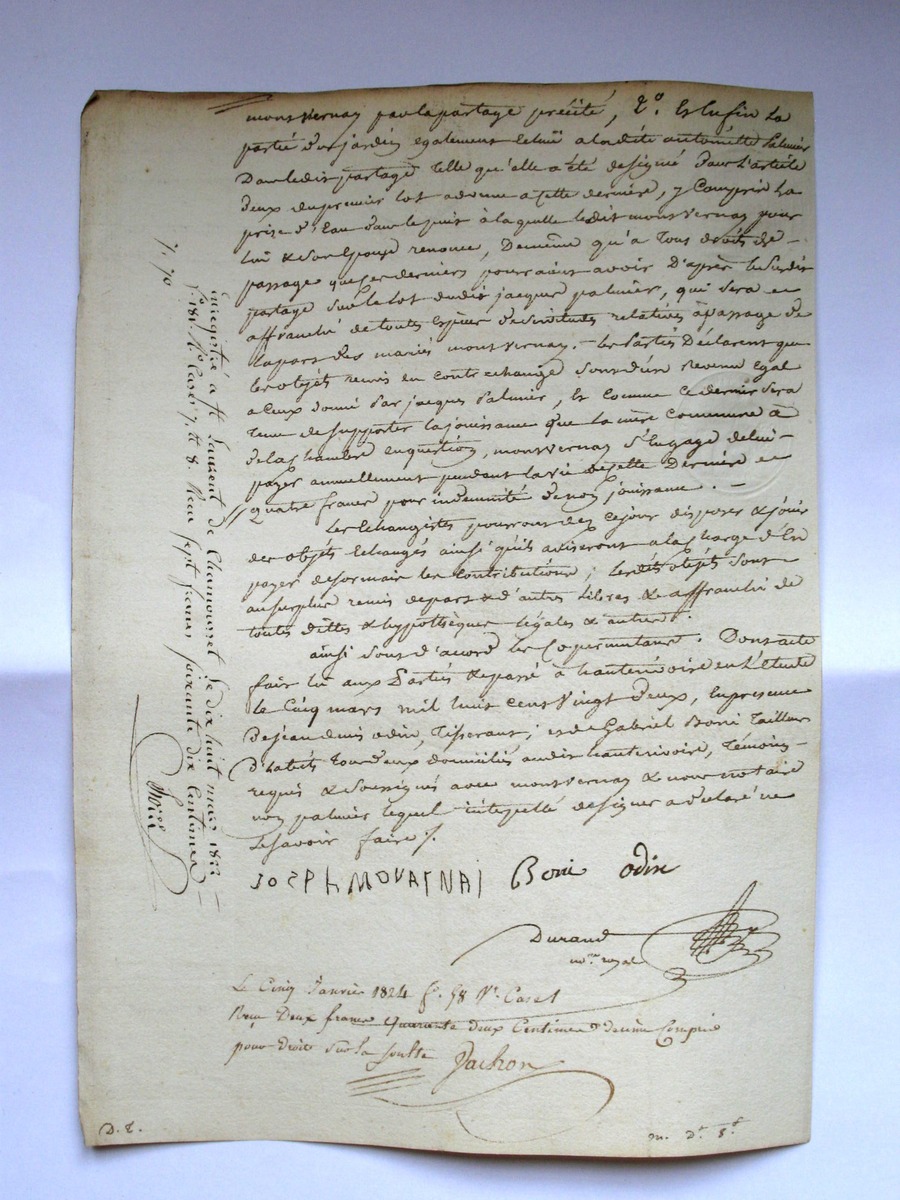 monsvernay par le partage précité, 2º. Et enfin la
partie du jardin egalement échu a ladite antoinette palmier
dans ledit partage telle qu'elle a été designé dans l'article
deux du premier lot advenu a cette derniere, y compris la
prise d'Eau dans le puit à laquelle ledit monsvernay pour
lui & son Epouse renonce, De même qu'à tous droits de
passage que ces derniers pourraient avoir D'après le susdit
partage sur le lot dudit jacques palmier, qui sera
affranchi de toutes Espèces de servitudes relatives à passage de
la part des mariés monsvernay. - les parties Déclarent que
les objets remis en contrechange sont d'un revenu egal
a ceux donné par jacques palmier, Et comme ce dernier sera
tenu de supporter la jouissance que la mère commune a
de la chambre en question, monsvernay s'Engage de lui
payer annuellement pendant la vie de cette Dernière
quatre francs pour indemnité de non jouissance. -
Les Echangistes pourront dez ce jour disposer & jouir
des objets Echangés ainsi qu'ils aviseront a la charge d'En
payer desormais les Contributions; lesdits objets sont
au surplus remis de part & d'autres libres & affranchi de
toutes dettes & hypothèques légales & autres.
ainsi sont d'accord les Copermutans. Dont acte
fait lu aux Parties & passé à hauterivoire en l'étude
le Cinq mars mil huit cent vingt deux, En presence
De jean denis odin, Tisserant, et de Gabriel Boni Tailleur
D'habits tous deux domiciliés audit hauterivoire, Témoins
requis & Soussignés avec monsvernay & nous notaire
non palmier lequel interpellé de signer a declaré ne
le savoir faire /.
JOSEPH MOVARNAI Boni odin
Durand
no.re royal
Le Cinq Janvier 1824 f.º 98 Vº. Case 1
Reçu Deux francs Quarante deux Centimes Décime Compris
pour Droit sur la soulte Jachon
D. E.
m. Dr. 8f
7. 70
Enregistré a St laurent de Chamousset le dix huit mars 1822
fº 181. Vº. Case 7. et 8. Reçu sept francs soixante dix Centimes